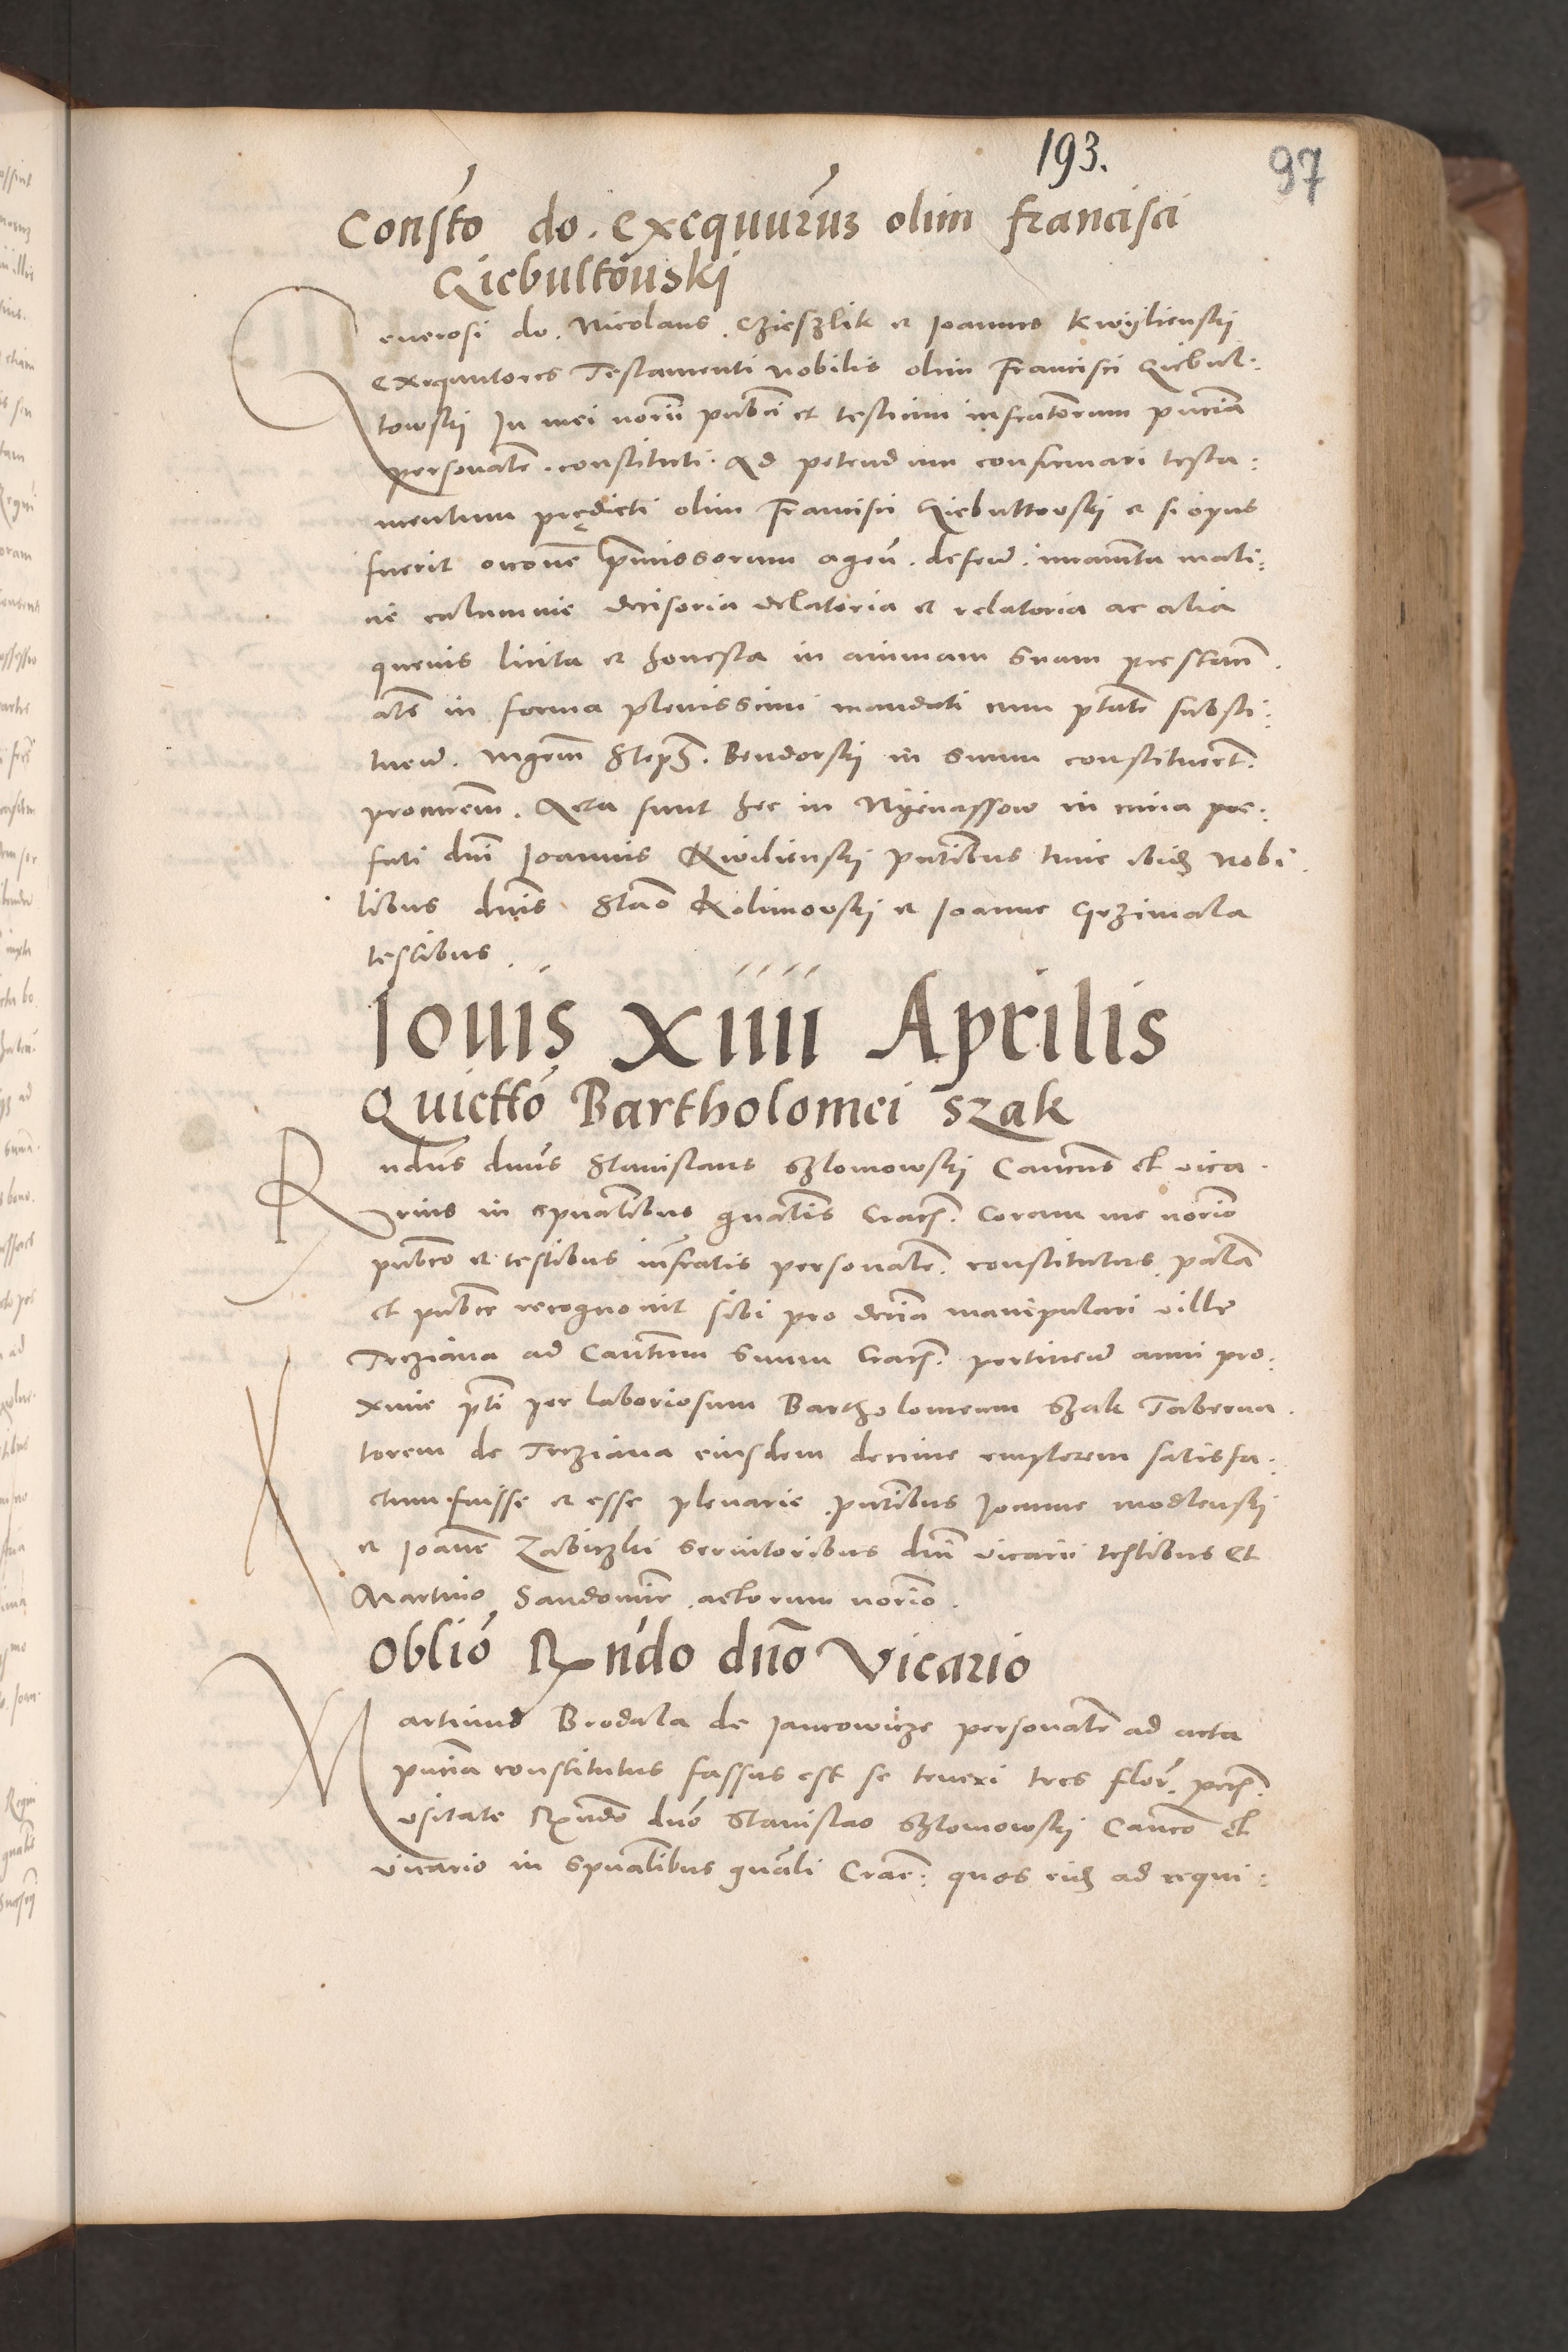 193.
97
Consto do. Exequurum olim francisci
Giebultouski
Generosi do. Nicolaus. Czieszlik et Joannes Kwylienskj
Exequutores Testamenti nobilis olim Francisci Giebul:
towskj In mei norii pubci et testium infratorum pncia
personalr. constituti. Ad petendum confirmari testa:
mentum prędicti olim Francisci Giebultowskj et si opus
fuerit occone pmissorum agen. defend. iuramta mali:
tie calumnie decisoria delatoria et relatoria ac alia
quevis licita et honesta in animam suam prestand.
als in forma plenissimi mandati cum ptate substi:
tuend. Mgrm Steph. Bendorskj in suum constituert.
procurem. Acta sunt hec in Nyenassow in curia pre:
fati dni Joannis Kwilienskj pntibus tunc ibid nobi
libus dnis Stao Kolimowskj et Joanne Grzimala
testibus.
Iouis XIIII Aprilis
Quictto Bartholomei Szak
Rndus dnus Stanislaus Szlomowskj Cancus et vica.
rius in spualibus gnalis Crac. Coram me norio
pubco et testibus infratis personalr. constitutus palā
et pubce recognovit sibi pro decīa manipulari ville
Trcziana ad Canctum suum Crac. pertinend anni pro:
xime pti per laboriosum Bartholomeum Szak Taberna.
torem de Trcziana eiusdem decime emptorem satisfa:
ctum fuisse et esse plenarie pntibus Joanne Modlenskj
et Joane Zabiczki servitoribus dni vicarii testibus et
Martino Sandomir. actorum norio.
Oblio Rndo dno Vicario
Martinus Brodala de Jancowicze personalr ad acta
pncia constitutus fassus est se teneri tres flor. pecs.
usitate Rndo dno Stanislao Szlomowskj Canco et
vicario in spualibus gnali Crac: quos eid ad requi: